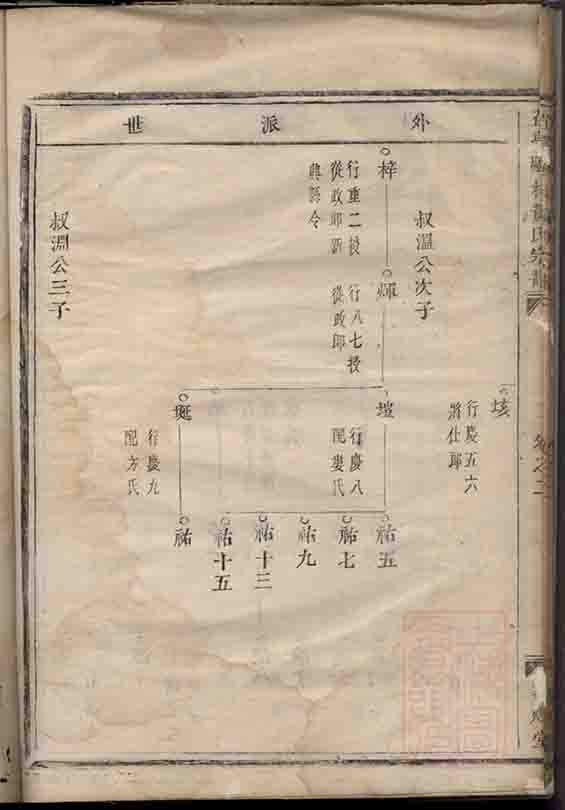 外派世
垓
行慶五六
將仕郎
叔溫公次子
梓
行重二授
從政郎新
興縣令
輝
行八七授
從政郎
塏
行慶八
配婁氏
祐五
祐七
祐九
祐十三
祐十五
埏
行慶九
配方氏
祐
叔淵公三子
氏宗譜
卷之二